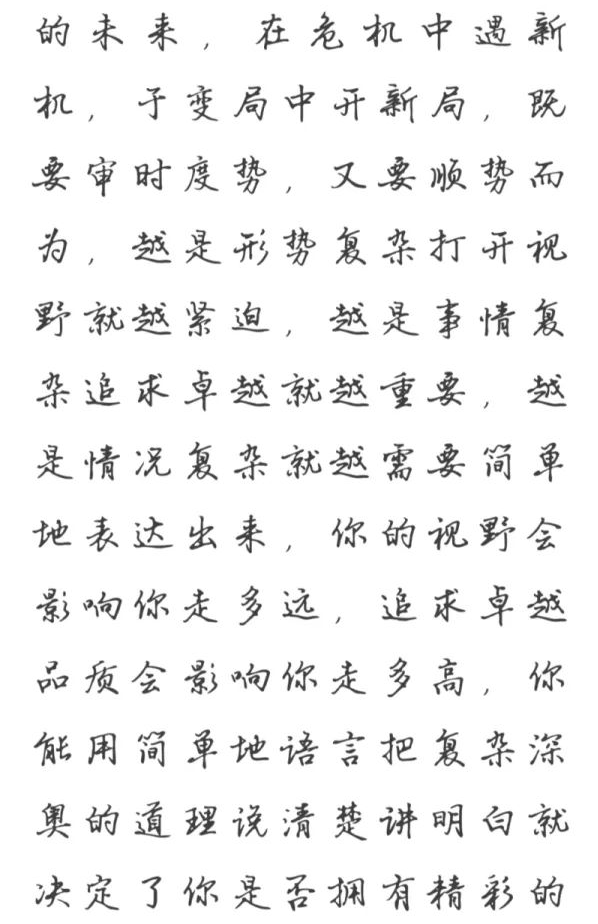 的未来，在危机中遇新
机，于变局中开新局，既
要审时度势，又要顺势而
为，越是形势复杂打开视
野就越紧迫，越是事情复
杂追求卓越就越重要，越
是情况复杂就越需要简单
地表达出来，你的视野会
影响你走多远，追求卓越
品质会影响你走多高，你
能用简单地语言把复杂深
奥的道理说清楚讲明白就
决定了你是否拥有精彩的